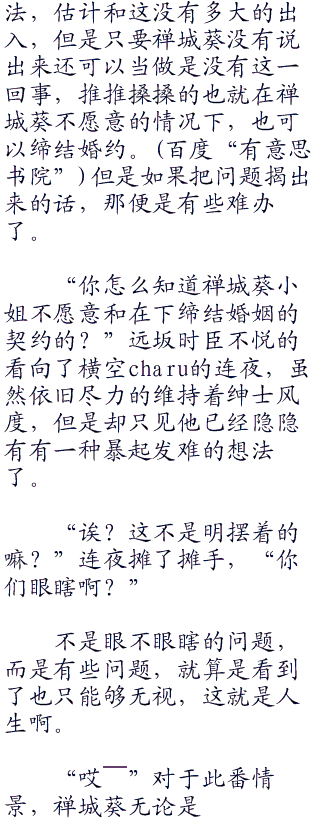 法，估计和这没有多大的出
入，但是只要禅城葵没有说
出来还可以当做是没有这一
回事，推推搡搡的也就在禅
城葵不愿意的情况下，也可
以缔结婚约。(百度“有意思
书院”)但是如果把问题揭出
来的话，那便是有些难办
了。
“你怎么知道禅城葵小
姐不愿意和在下缔结婚姻的
契约的？”远坂时臣不悦的
看向了横空charu的连夜，虽
然依旧尽力的维持着绅士风
度，但是却只见他已经隐隐
有有一种暴起发难的想法
了。
“诶？这不是明摆着的
嘛？”连夜摊了摊手，“你
们眼瞎啊？”
不是眼不眼瞎的问题，
而是有些问题，就算是看到
了也只能够无视，这就是人
生啊。
“哎——”对于此番情
景，禅城葵无论是